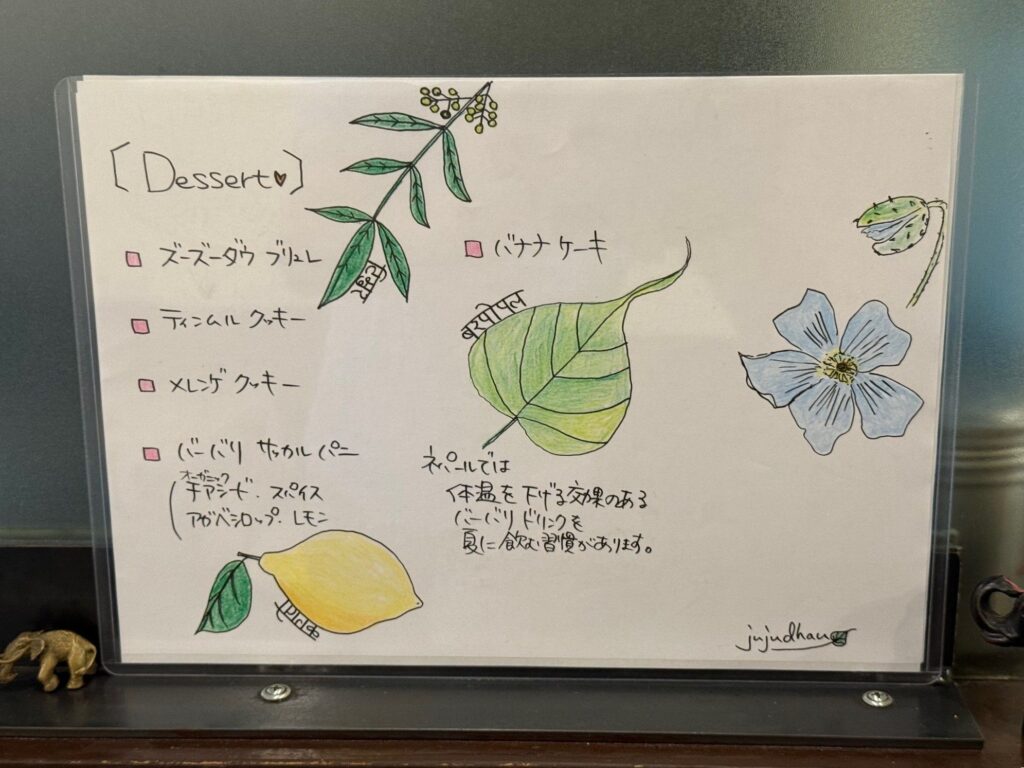 [Dessert♥]
ズーズーダウ ブリュレ
ティンムル クッキー
メレンゲ クッキー
バーバリ サッカル パニー
オーガニック
(チアシード・スパイス
アガベシロップ・レモン
バナナケーキ
वरपीपल
ネパールでは
体温を下げる効果のある
バーバリ ドリンクを
夏に飲む習慣があります。
jujudhau